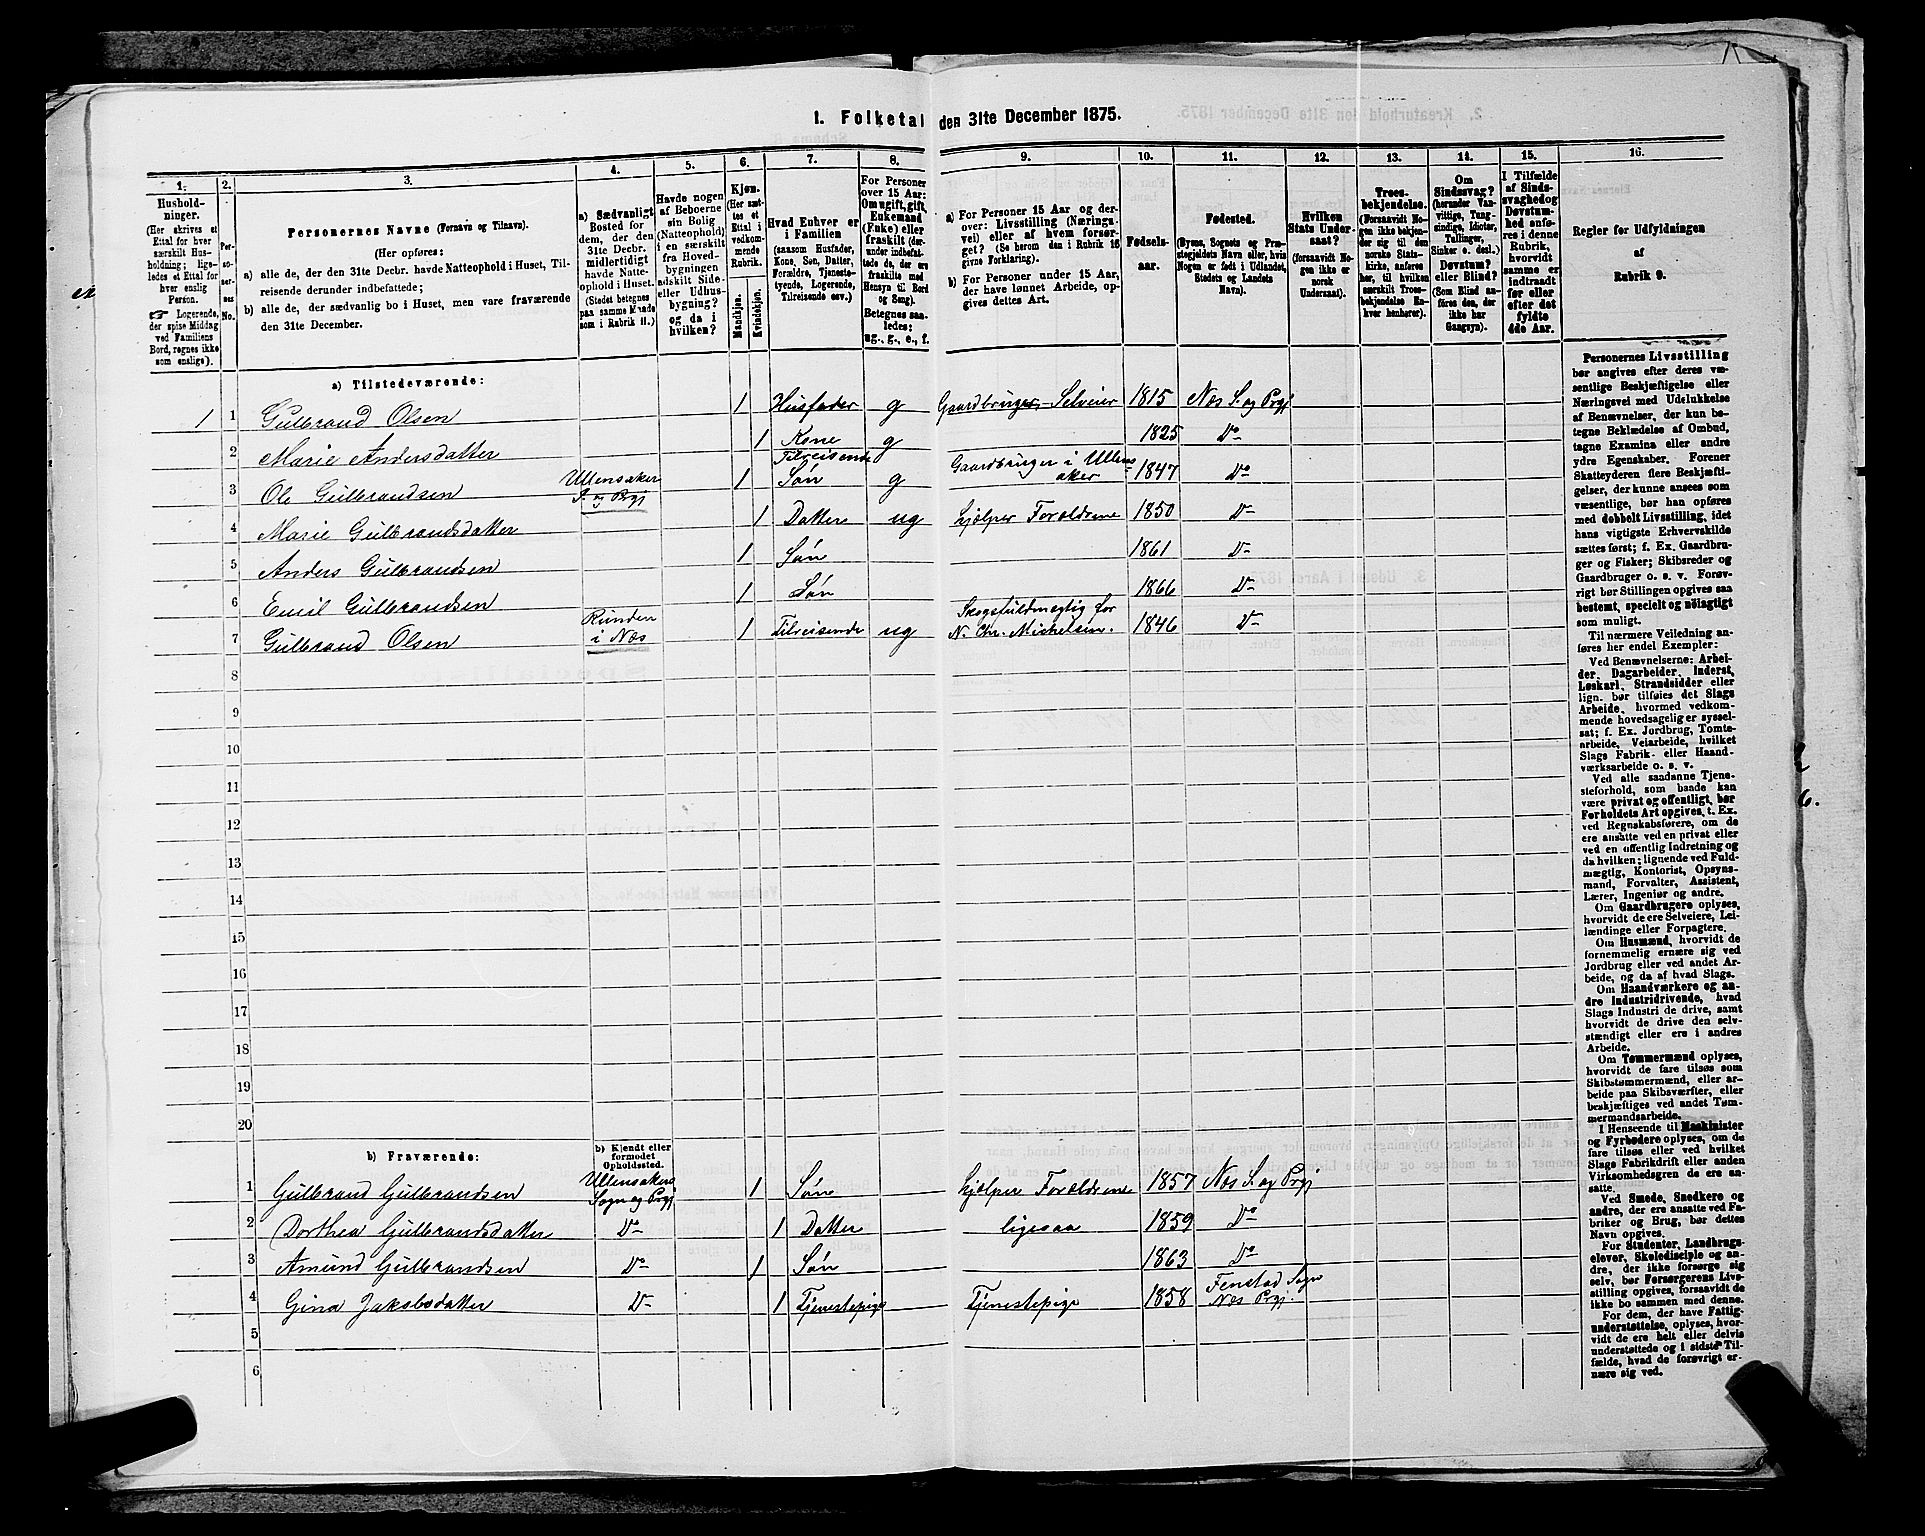 1. Folketal den 31te December 1875.
1.
2.
3.
4.
5.
6.
7.
8.
9.
10.
11.
12.
13.
14.
15.
16.
Husholdninger.
(Her skrives et
Ettal for hver
særskilt Husholdning;
ligeledes et Ettal for
hver enslig
Person.
☛ Logerende,
der spise Middag
ved Familiens
Bord, regnes ikke
som enslige).
Personernes No.
Personernes Navne (Fornavn og Tilnavn).
(Her opføres:
a) alle de, der den 31te Decbr. havde Natteophold i Huset, Tilreisende derunder indbefattede;
b) alle de, der sædvanlig bo i Huset, men vare fraværende
den 31te December.
a) Sædvanligt
Bosted for
dem, der den
31te Decbr.
midlertidigt
havde Natteophold i Huset.
(Stedet betegnes
paa samme Maade
som i Rubrik 11.)
Havde nogen
af Beboerne
sin Bolig
(Natteophold)
i en særskilt
fra Hovedbygningen
adskilt Side-
eller Udhusbygning?
og da i
hvilken?
Kjøn.
(Her sættes et
Ettal i
vedkommende
Rubrik.
Mandkjøn.
Kvindekjøn.
Hvad Enhver er
i Familien
(saasom Husfader,
Kone, Søn, Datter,
Forældre, Tjenestetyende, Logerende,
Tilreisende osv.)
For Personer
over 15 Aar:
Om ugift, gift,
Enkemand
(Enke) eller
fraskilt (derunder indbefattede de, der ere
fraskilte med
Hensyn til Bord
og Seng).
Betegnes saaledes:
ug., g., e., f.
a) For Personer 15 Aar og derover: Livsstilling (Næringsvei) eller af hvem forsørget? (Se herom den i Rubrik 16
givne Forklaring).
b) For Personer under 15 Aar,
der have lønnet Arbeide, opgives dettes Art.
Fødselsaar.
Fødested.
(Byens, Sognets og Præstegjeldets Navn eller, hvis
Nogen er født i Udlandet,
Stedets og Landets
Navn).
Hvilken
Stats Undersaat?
(forsaavidt Nogen ikke er
norsk
Undersaat).
Troesbekjendelse.
(Forsaavidt Nogen ikke bekjender sig til den
norske Statskirke, anføres
her, til hvilken
særskilt Troesbekjendelse Enhver henhører).
Om
Sindssvag?
(herunder Vanvittige, Tungsindige, Idioter,
Tullinger,
Sinker o. desl.).
Døvstum?
eller Blind?
(Som Blind anføres den, der
ikke har
Gangsyn).
I Tilfælde
af Sindssvaghed og
Døvstumhed anføres i denne
Rubrik,
hvorvidt
samme er
indtraadt
før eller
efter det
fyldte
4de Aar.
Regler for Udfyldningen
af
Rubrik 9.
a) Tilstedeværende:
1 1 Gulbrand Olsen 1 Husfader g Gaardbruger, Selveier 1815 Næs S. og Prgj
2 Marie Andersdatter 1 Kone g 1825 Do
3 Ole Gulbrandsen Ullensaker S. og Prgj 1 Tilreisende Søn g Gaardbruger i Ullensaker 1847 Do
4 Marie Gulbrandsdatter 1 Datter ug hjælper Forældrene 1850 D-
5 Anders Gulbrandsen 1 Søn 1861 D-
6 Emil Gulbrandsen 1 Søn 1866 D-
7 Gulbrand Olsen Runden i Næs 1 Tilreisende ug Skogsfuldmægtig for N. Chr. Mickelsen. 1846 D-
8
9
10
11
12
13
14
15
16
17
18
19
20
b) Fraværende:
b) Kjendt eller
formodet
Opholdssted.
1 Gulbrand Gulbrandsen Ullensaker Sogn og Prgj 1 Søn hjælper Forældrene 1857 Næs S. og Prgj
2 Dorthea Gulbrandsdatter Do 1 Datter ligesaa 1859 Do
3 Amund Gulbrandsen Do 1 Søn 1863 Do
4 Gina Jakobsdatter D- 1 Tjenestepige Tjenestepige 1858 Fenstad Sogn Næs Prgj.
5
6
Personernes Livsstilling
bør angives efter deres væsentlige Beskjæftigelse eller
Næringsvei med Udelukkelse
af Benævnelser, der kun betegne Beklædelse af Ombud,
tagne Examina eller andre
ydre Egenskaber. Forener
Skatteyderen flere Beskjæftigelser, der kunne ansees som
væsentlige, bør han opføres
med dobbelt Livsstilling, idet
hans vigtigste Erhvervskilde
sættes først; f. Ex. Gaardbruger og Fisker; Skibsreder og
Gaardbruger o. s. v. Forøvrigt bør Stillingen opgives saa
bestemt, specielt og nøiagtigt
som muligt.
Til nærmere Veiledning anføres her endel Exempler:
Ved Benævnelserne: Arbeider, Dagarbeider, Inderst,
Løskarl, Strandsidder eller
lign. bør tilføies det Slags
Arbeide, hvormed vedkommende hovedsagelig er sysselsat; f. Ex. Jordbrug, Tomtearbeide, Veiarbeide, hvilket
Slags Fabrik- eller Haandværksarbeide o. s. v.
Ved alle saadanne Tjenesteforhold, som baade kan
være privat og offentligt, bør
Forholdets Art opgives, t. Ex.
ved Regnskabsførere, om de
ere ansatte ved en privat eller
ved en offentlig Indretning og
da hvilken; lignende ved Fuldmægtig, Kontorist, Opsynsmand, Forvalter, Assistent,
Lærer, Ingeniør og andre.
Om Gaardbrugere oplyses,
hvorvidt de ere Selveiere, Leilændinge eller Forpagtere.
Om Husmænd, hvorvidt de
fornemmelig ernære sig ved
Jordbrug eller ved andet Arbeide, og da af hvad Slags.
Om Haandværkere og andre Industridrivende, hvad
Slags Industri de drive, samt
hvorvidt de drive den selvstændigt eller ere i andres
Arbeide.
Om Tømmermænd oplyses,
hvorvidt de fare tilsøs som
Skibstømmermænd, eller arbeide paa Skibsværfter, eller
beskjæftiges ved andet Tømmermandsarbeide.
I Henseende til Maskinister
og Fyrbødere oplyses, om de
fare tilsøs eller ved hvilket
Slags Fabrikdrift eller anden
Virksomhedsgren de ere ansatte.
Ved Smede, Snedkere og
andre, der ere ansatte ved Fabriker og Brug, bør dettes
Navn opgives.
For Studenter, Landbrugselever, Skoledisciple og andre, der ikke forsørge sig
selv, bør Forsørgerens Livsstilling opgives, forsaavidt de
ikke bo sammen med denne.
For dem, der have Fattigunderstøttelse, oplyses, hvorvidt de ere helt eller delvis
understøttede og i sidste Tilfælde, hvad de forøvrigt ernære sig ved.